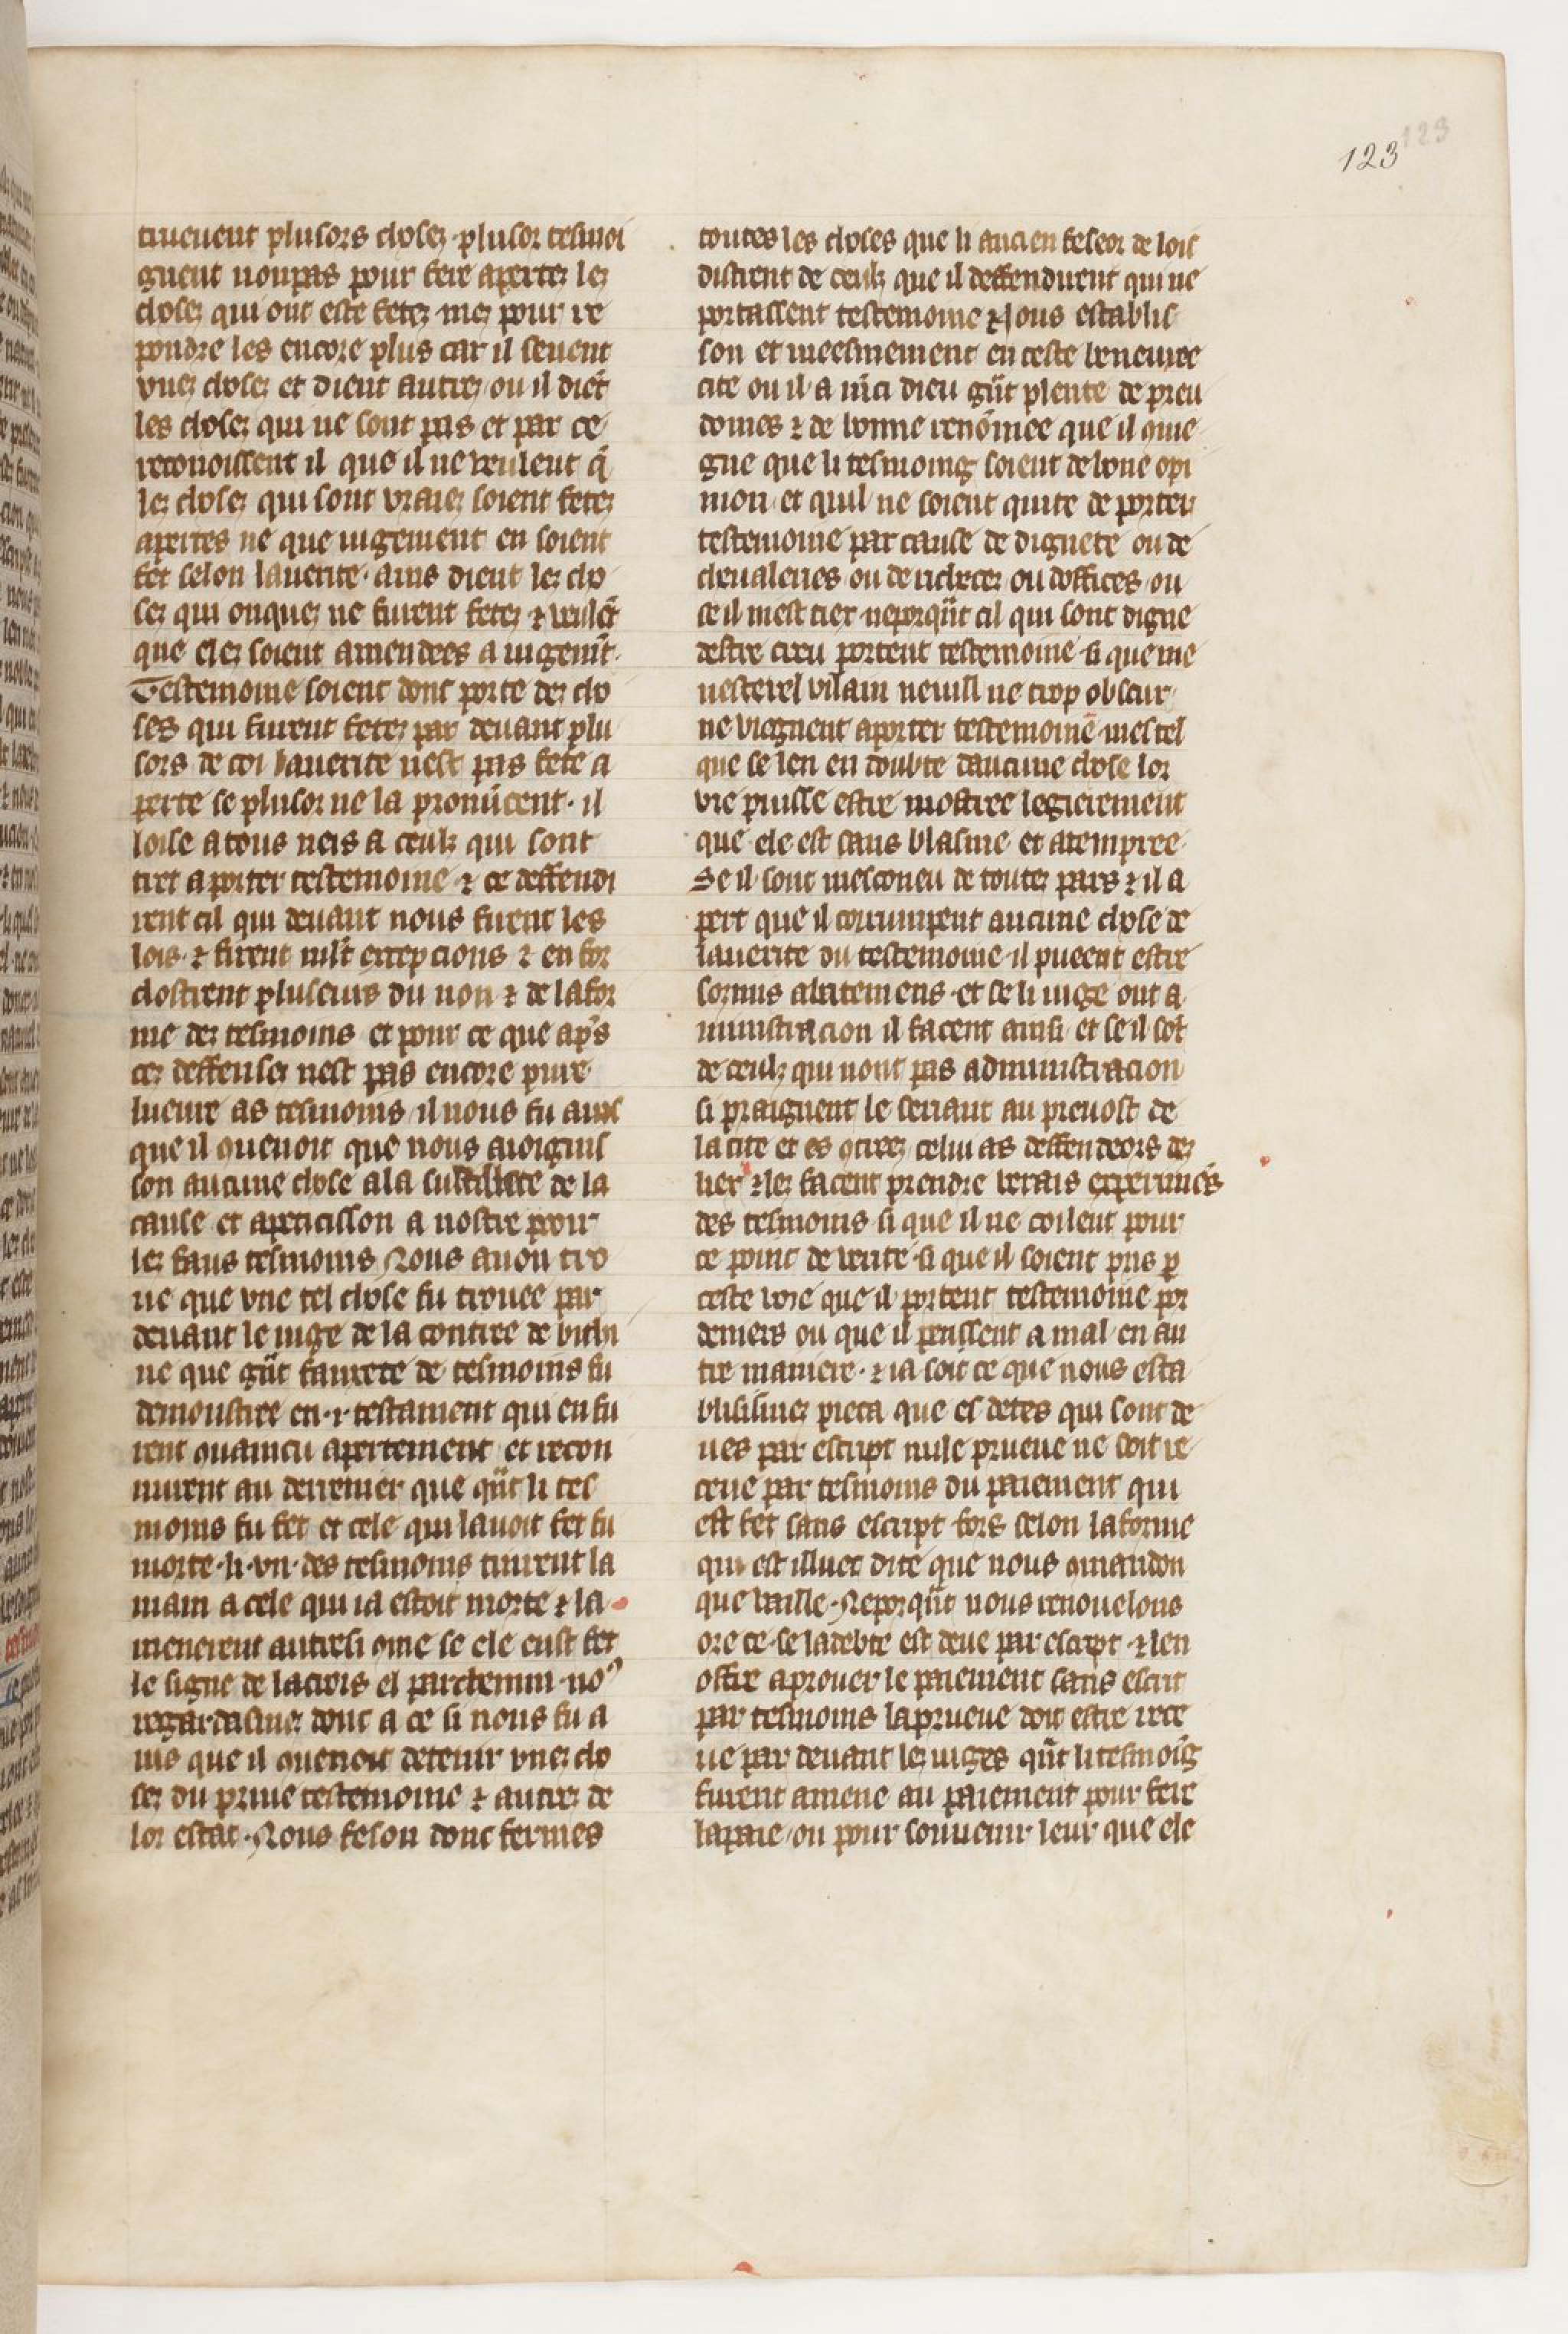 123
123
treuent plusors choses plusor tesmoi
gnent non pas pour fere apertez lez
chosez qui ont este fetez mez pour re
pondre les encore plus car il seuent
vnez chosez et dient autrez ou il diēt
les chosez qui ne sont pas et par ce
reconoissent il que il ne veulent q̄
lez chosez qui sont vraiez soient fetez
apertes ne que iugement en soient
fet selon la uerite · ains dient lez cho
sez qui onquez ne furent fetez ⁊ veulēt
que elez soient amendees a iugemt̄ ·
Testemoine soient donc porte dez cho
ses qui furent fetez par deuant plu
sors de coi la uerite nest pas fete a
perte se plusor ne la pronūcent · il
loise a tous neis a ceulz qui sont
tret a porter testemoine · ⁊ ce deffendi
rent cil qui deuant nous firent les
lois · ⁊ firent mlt̄ excepcions ⁊ en for
clostrent pluseurs du non ⁊ de la for
me dez tesmoins et pour ce que ap̄s
cez deffensez nest pas encore pure
lueure as tesmoins il nous fu auis
que il ꝯuenoit que nous aioignis
son aucune chose a la subtillite de la
cause et apeticisson a nostre pooir
lez faus tesmoins Nous auon tro
ue que vne tel chose fu trouee par
deuant le iuge de la contree de bithi
ne que gūt fausete de tesmoins fu
demoustree en · i · testament qui en fu
rent ꝯuaincu apertement et recon
nurent au derrenier que qūt li tes
moins fu fet et cele qui lauoit fet fu
morte · li · vn · des tesmoins tinrent la
main a cele qui ia estoit morte ⁊ la
menerent autresi ꝯme se ele eust fet
le signe de la crois el parchemin · noꝰ
regardasmez donc a ce si nous fu a
uis que il ꝯuenoit detenir vnez cho
sez du prime testemoine ⁊ autrez de
lor estat · Nous feson donc fermes
toutes les choses que li ancien feseor de lois
distrent de ceulz que il deffendirent qui ne
portassent testemoine Nous establis
son et meesmement en ceste beneuree
cite ou il a m̄ci dieu gūt plente de preu
domes ⁊ de bonne renōmee que il ꝯuie
gne que li tesmoing soient de bone opi
nion et quil ne soient quite de porter
testemoine par cause de dignete ou de
cheualeries ou de richecez ou doffices ou
se il mest tier neporqūt cil qui sont digne
destre creu portent testemoine si que me
nesterel vilain ne uill ne trop obscur
ne viegnent aporter testemoine mes tel
que se len en doubte daucune chose lor
vie puisse estre mostree legierement
que ele est sans blasme et atempree
Se il sont mesconeu de toutez pars ⁊ il a
pert que il corrumpent aucune chose de
la uerite du testemoine il pueent estre
sormis a batemens · et se li iuge ont a
ministracion il facent ainsi et se il sot
de ceulz qui nont pas administracion
si praignent le seriant au preuost de
la cite et es ꝯtreez celui as deffendeors dez
liez ⁊ lez facent prendre verais experimēs
des tesmoins si que il ne coilent pour
ce point de verite si que il soient pris ꝑ
ceste voie que il portent testemoine por
deniers ou que il penssent a mal en au
tre maniere · ⁊ ia soit ce que nous esta
blisismez pieca que es detes qui sont de
ues par escript nule prueue ne doit re
ceue par tesmoins du paiement qui
est fet sans escript fors selon la forme
qui est illuec dite que nous ꝯmandon
que vaille · Neporqūt nous renouelons
ore ce · se la debte est deue par escript · ⁊ len
offre a prouer le paiement sans escrit
par tesmoins la prueue doit estre rece
ue par deuant lez iuges qūt li tesmoīg
furent amene au paiement pour fere
la paie ou pour souuenir leur que ele